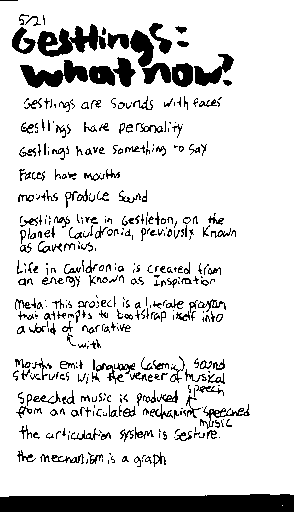 5/21
Gestlings:
what now?
Gestlings are sounds with faces
Gestlings have personality
Gestlings have something to say
Faces have mouths
mouths produce sound
Gestlings live in Gestleton, on the
planet Cauldronia, previously known
as Cavernius.
Life in Cauldronia is created from
an energy known as Inspiration
Meta: this project is a literate program
that attempts to bootstrap itself into
a world of narrative
with
Mouths emit language (asemic), sound
structures with the veneer of musical
speech
Speeched music is produced
from an articulated mechanism
speeched
music
the articulation system is Gesture.
the mechanism is a graph